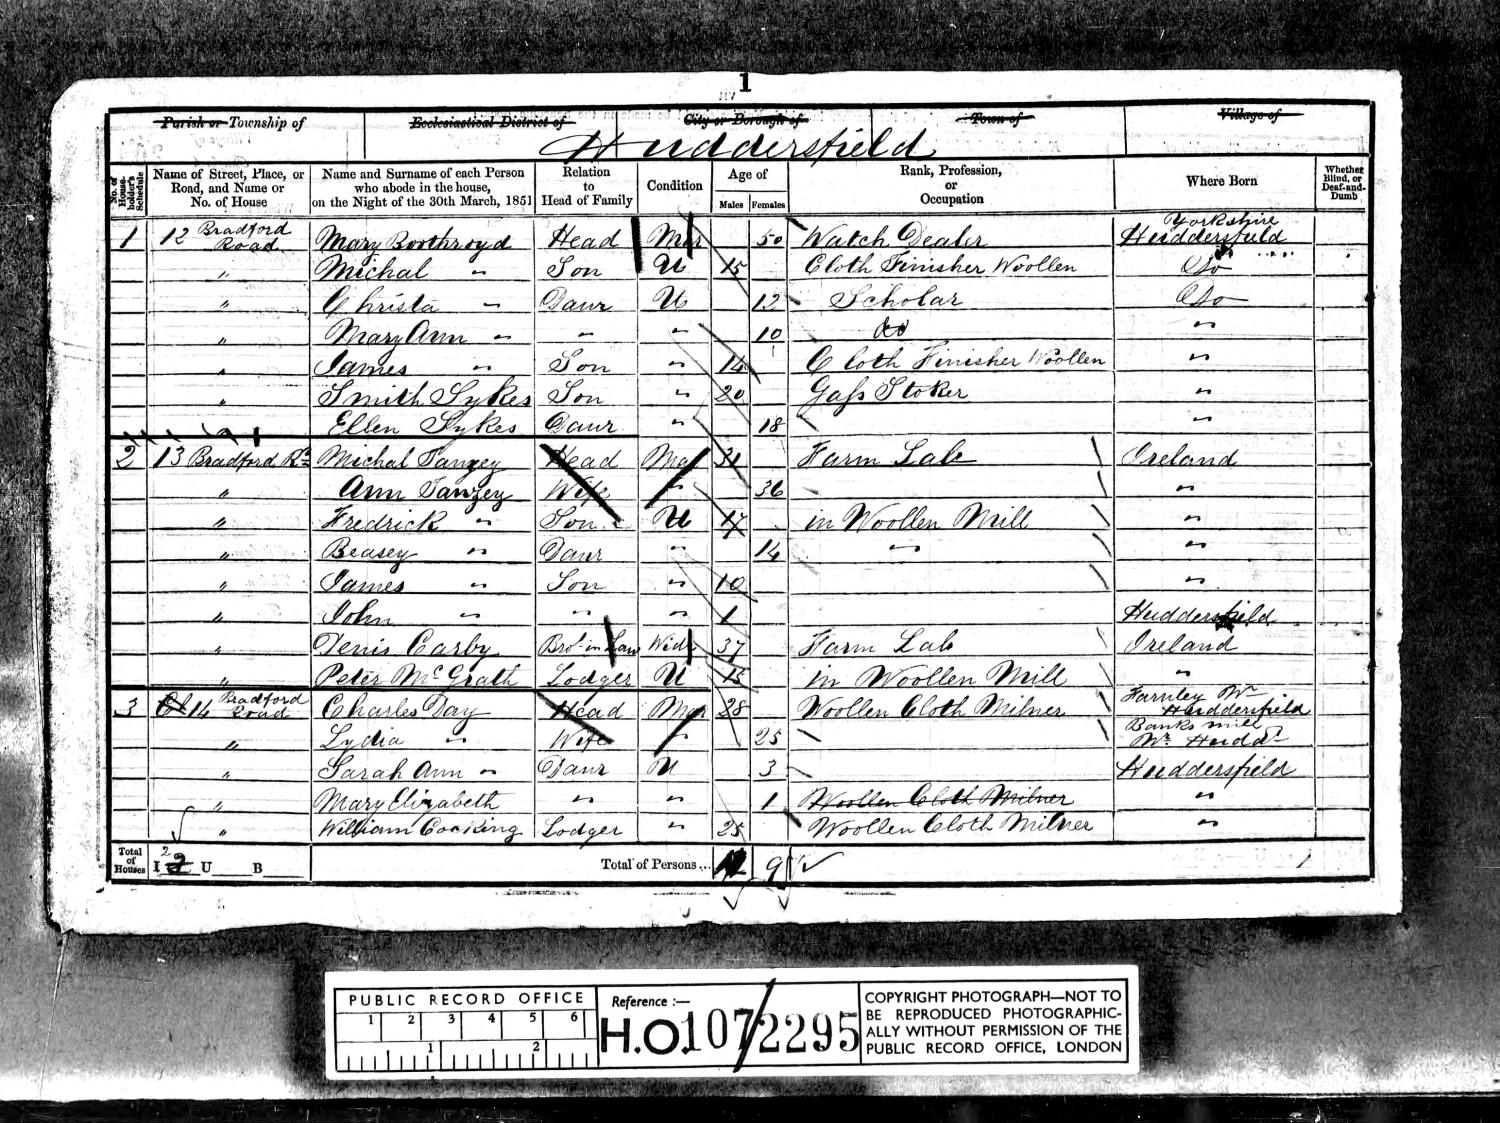 1
Parish or Township of Ecclesiastical District of City or Borough of Town of Village of
Huddersfield
No. of Householder's Schedule Name of Street, Place, or Road, and Name or No. of House Name and Surname of each Person who abode in the house, on the Night of the 30th March, 1851 Relation to Head of Family Condition Age of Males Females Rank, Profession, or Occupation Where Born Whether Blind, or Deaf-and-Dumb
1 12 Bradford Road Mary Boothroyd Head Mar 50 Watch Dealer Yorkshire Huddersfield
" Michal " Son U 15 Cloth Finisher Woollen Do
" Christa " Daur U 12 Scholar Do
" Mary Ann " " " 10 do "
" James " Son " 14 Cloth Finisher Woollen "
" Smith Sykes Son " 20 Gass Stoker "
Ellen Sykes Daur " 18 "
2 13 Bradford Rd Michal Tanzey Head Mar 31 Farm Lab Ireland
" Ann Tanzey Wife " 36 "
" Fredrick " Son U 17 in Woollen Mill "
" Beasey " Daur " 14 " "
" James " Son " 10 "
" John " " " 1 Huddersfield
" Denis Carby Bro-in Law Widr 37 Farm Lab Ireland
" Peter McGrath Lodger U 15 in Woollen Mill "
3 14 Bradford Road Charles Day Head Mar 28 Woollen Cloth Milner Farnley Nr Huddersfield
" Lydia " Wife " 25 Banks mill Nr Hudd
" Sarah Ann " Daur U 3 Huddersfield
" Mary Elizabeth " " 1 Woollen Cloth Milner "
" William Cocking Lodger " 25 Woollen Cloth Milner "
Total of Houses I 2 U B Total of Persons... 9
PUBLIC RECORD OFFICE
1 2 3 4 5 6
1 2
Reference :—
H.O. 107/2295
COPYRIGHT PHOTOGRAPH—NOT TO
BE REPRODUCED PHOTOGRAPHIC-
ALLY WITHOUT PERMISSION OF THE
PUBLIC RECORD OFFICE, LONDON